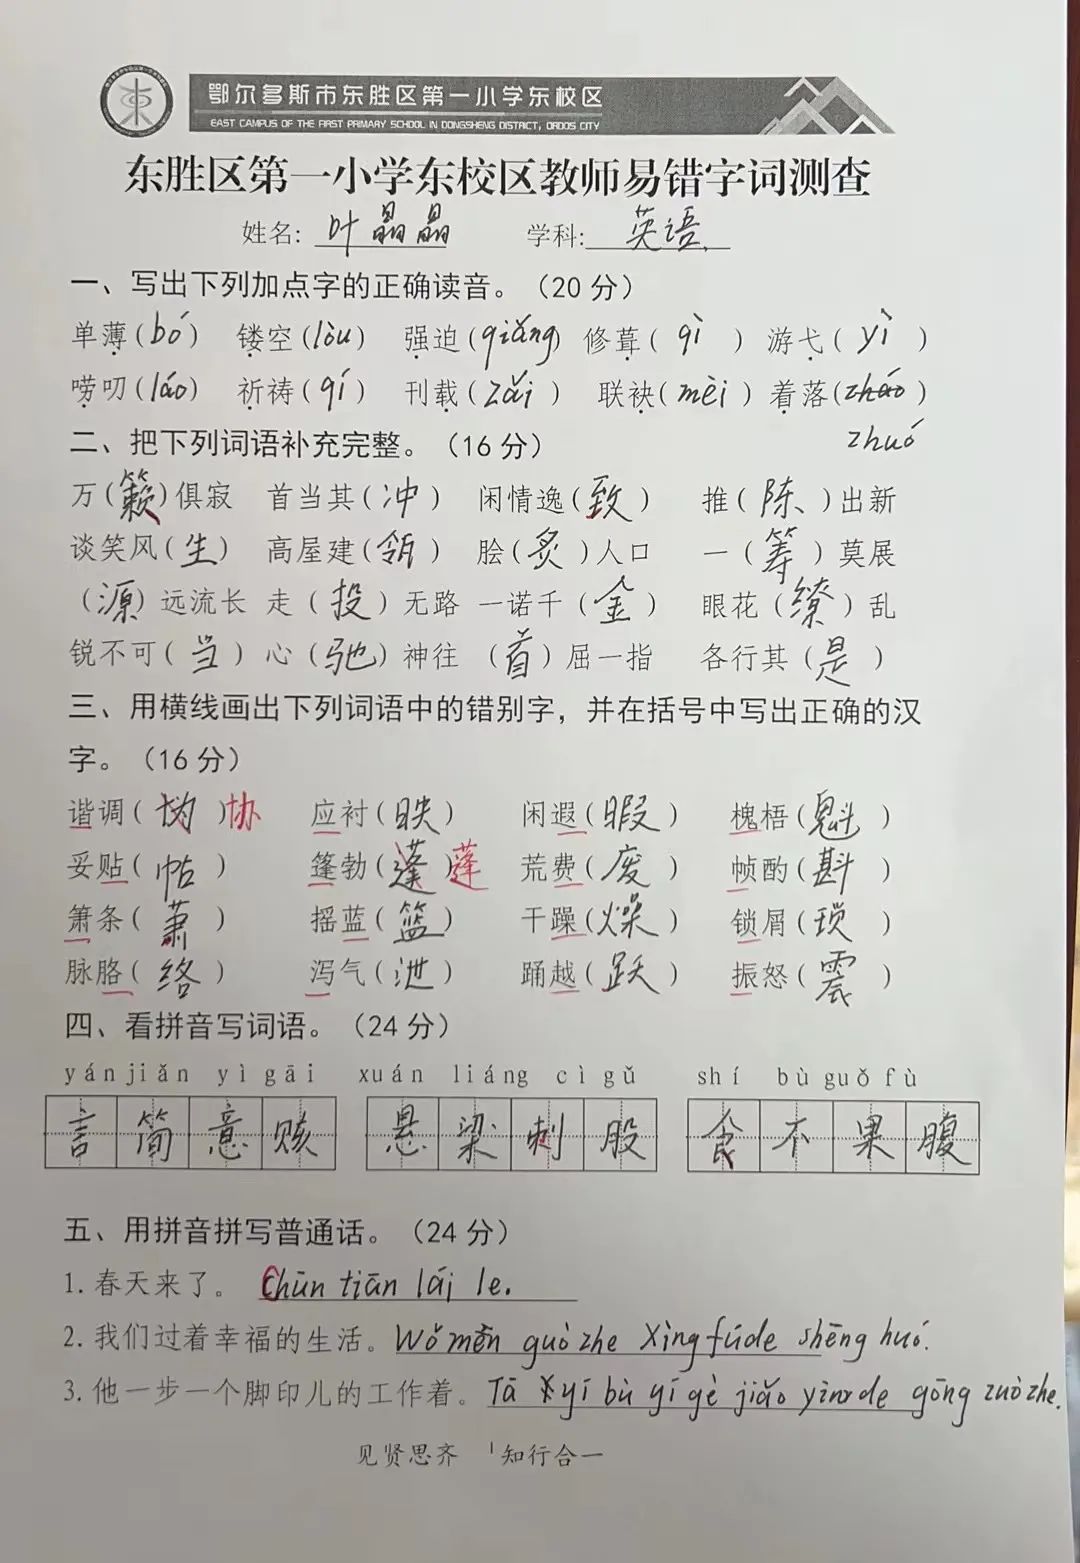 鄂尔多斯市东胜区第一小学东校区
EAST CAMPUS OF THE FIRST PRIMARY SCHOOL IN DONGSHENG DISTRICT, ORDOS CITY
东胜区第一小学东校区教师易错字词测查
姓名: 叶晶晶 学科: 英语
一、写出下列加点字的正确读音。（20 分）
单薄(bó) 镂空(lòu) 强迫(qiǎng) 修葺(qì) 游弋(yì)
唠叨(láo) 祈祷(qí) 刊载(zǎi) 联袂(mèi) 着落(zháo)
zhuó
二、把下列词语补充完整。（16 分）
万(籁)俱寂 首当其(冲) 闲情逸(致) 推(陈)出新
谈笑风(生) 高屋建(瓴) 脍(炙)人口 一(筹)莫展
(源)远流长 走(投)无路 一诺千(金) 眼花(缭)乱
锐不可(当) 心(驰)神往 (首)屈一指 各行其(是)
三、用横线画出下列词语中的错别字，并在括号中写出正确的汉
字。（16 分）
谐调( )协 应衬(映) 闲遐(暇) 槐梧(魁)
妥贴(帖) 篷勃(蓬)蓬 荒费(废) 帧酌(斟)
箫条(萧) 摇蓝(篮) 干躁(燥) 锁屑(琐)
脉胳(络) 泻气(泄) 踊越(跃) 振怒(震)
四、看拼音写词语。（24 分）
yán jiǎn yì gāi xuán liáng cì gǔ shí bù guǒ fù
言简意赅 悬梁刺股 食不果腹
五、用拼音拼写普通话。（24 分）
1. 春天来了。 Chūn tiān lái le.
2. 我们过着幸福的生活。 Wǒ mēn guò zhe Xìng fúde shēng huó.
3. 他一步一个脚印儿的工作着。 Tā yí bù yí gè jiǎo yìnr de gōng zuò zhe.
见贤思齐 知行合一